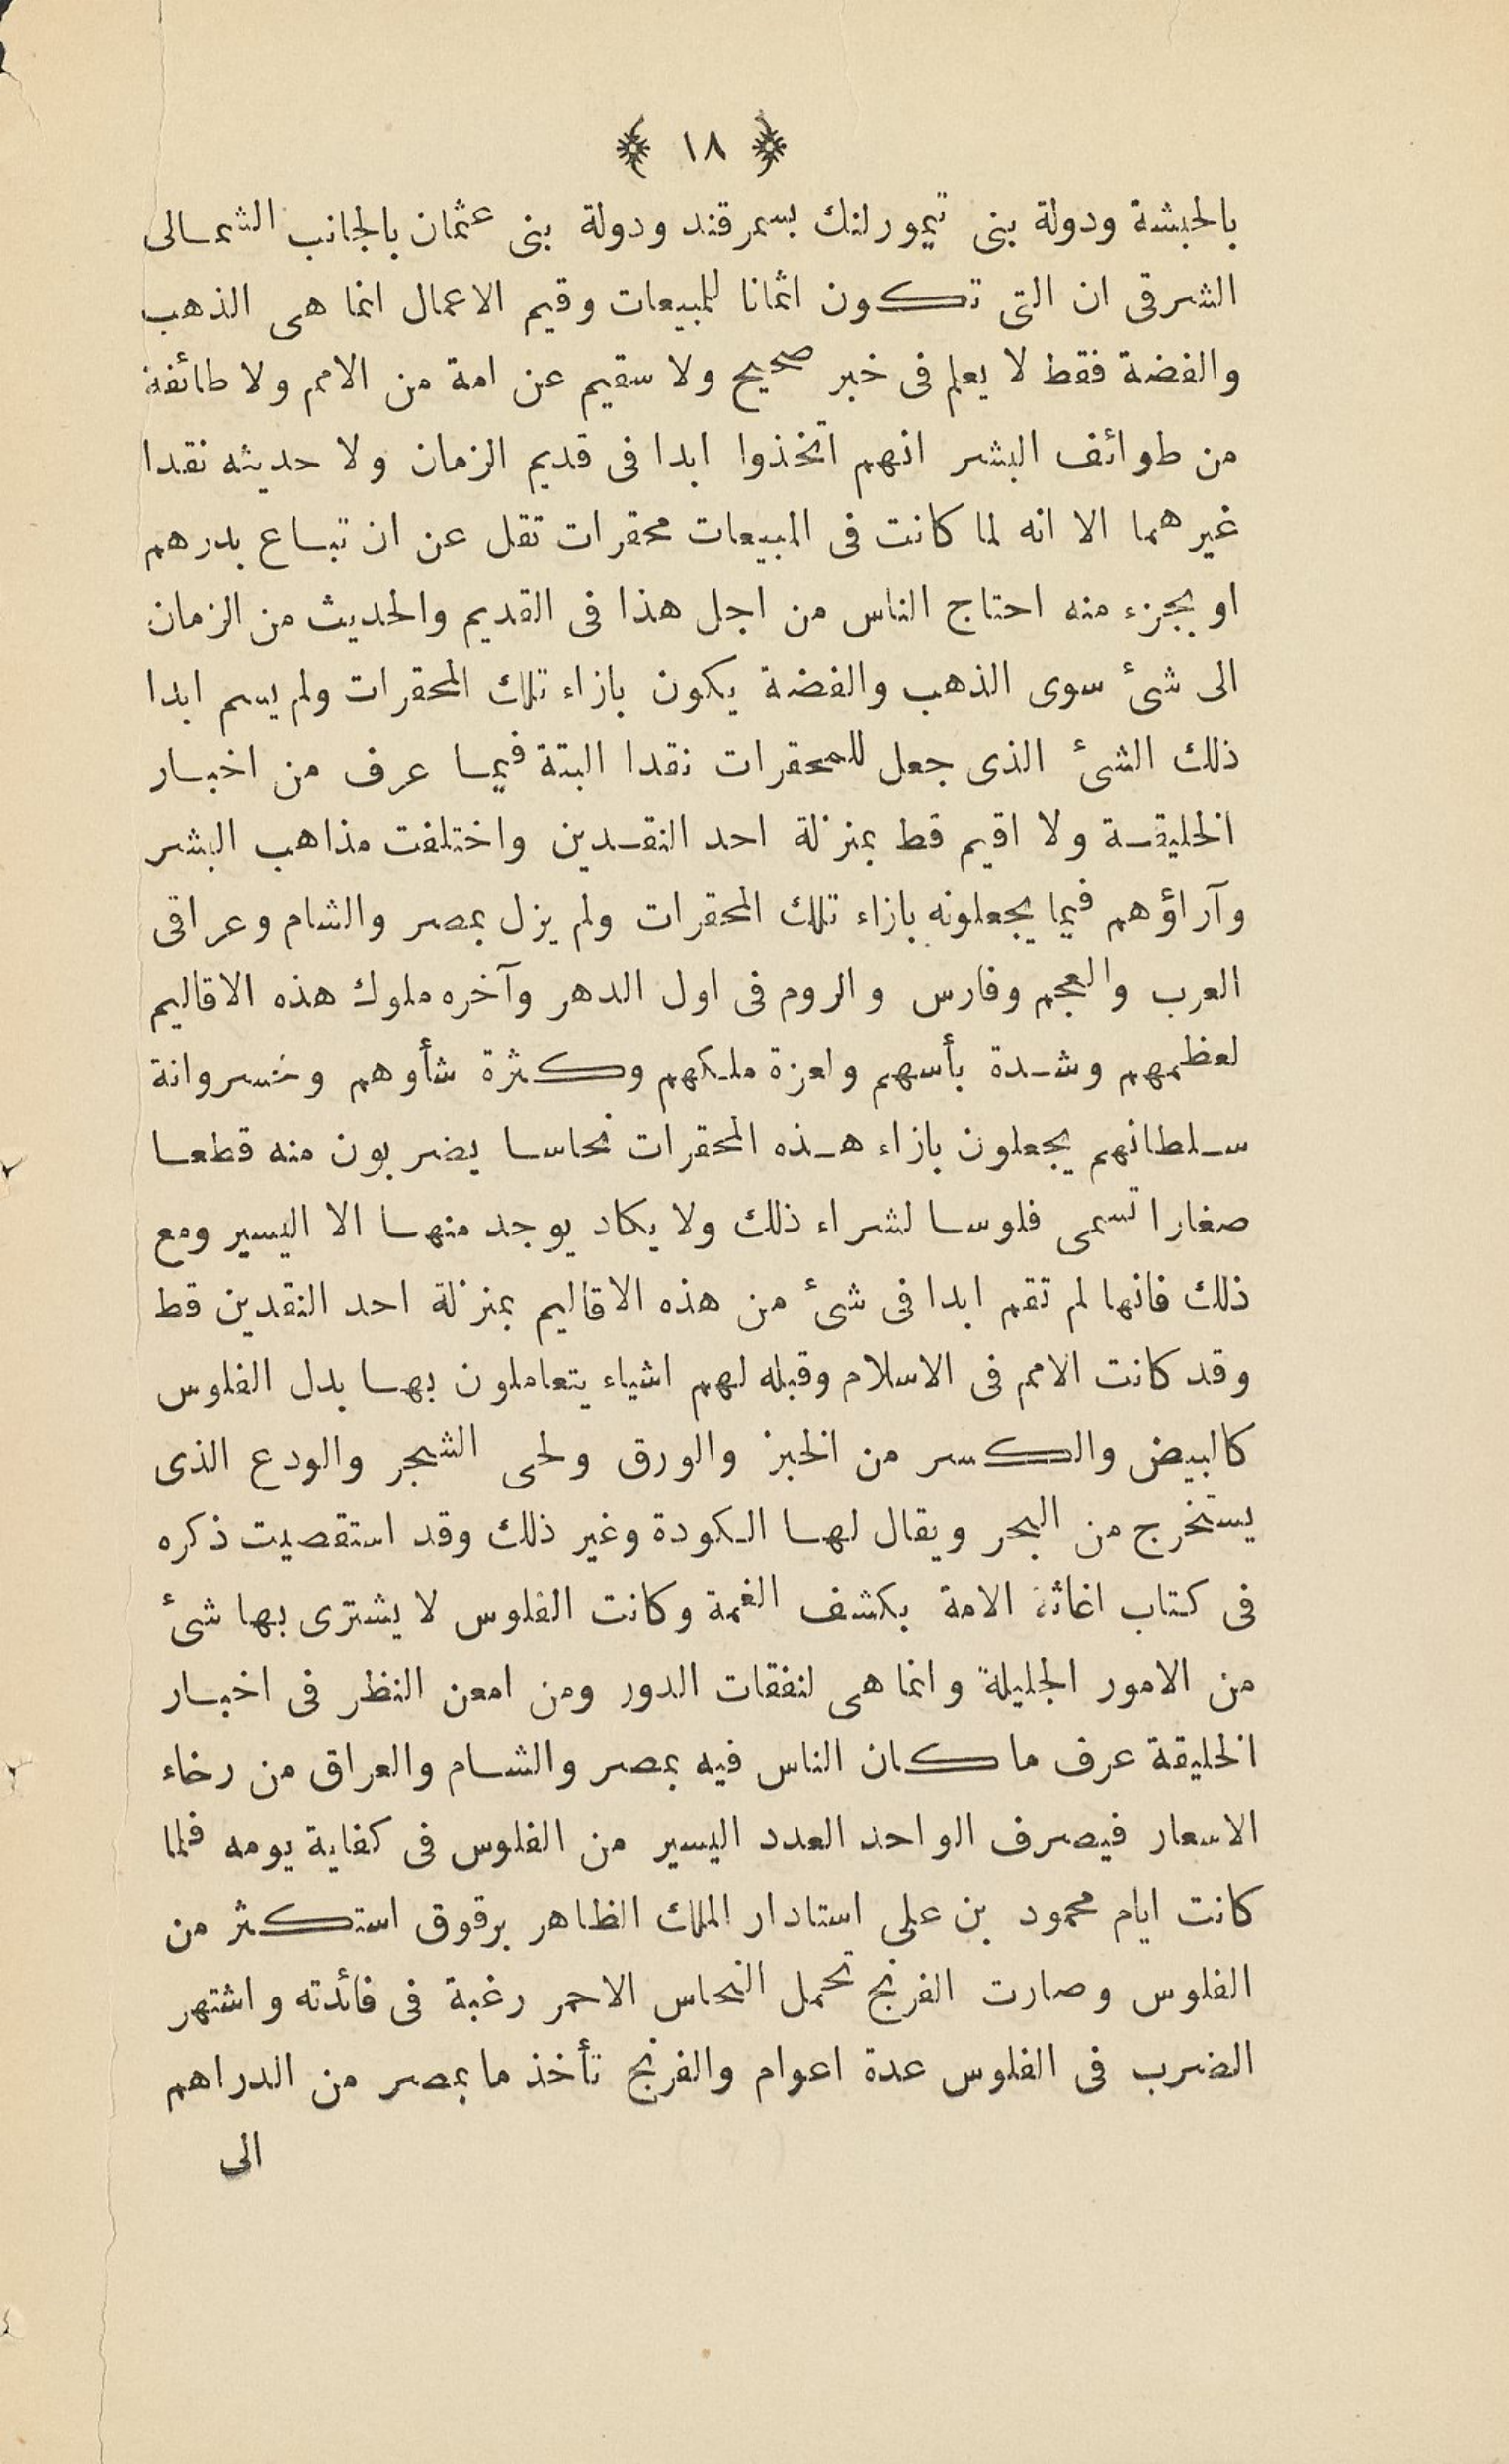 ﴿ ١٨ ﴾
بالحبشة ودولة بنى تيمورلنك بسمرقند ودولة بنى عثمان بالجانب الشمالى
الشرقى ان التى تكون اثمانا للمبيعات وقيم الاعمال انما هى الذهب
والفضة فقط لا يعلم فى خبر صحيح ولا سقيم عن امة من الامم ولا طائفة
من طوائف البشر انهم اتخذوا ابدا فى قديم الزمان ولا حديثه نقدا
غيرهما الا انه لما كانت فى المبيعات محقرات تقل عن ان تباع بدرهم
او بجزء منه احتاج الناس من اجل هذا فى القديم والحديث من الزمان
الى شئ سوى الذهب والفضة يكون بازاء تلك المحقرات ولم يسم ابدا
ذلك الشئ الذى جعل للمحقرات نقدا البتة فيما عرف من اخبار
الخليقة ولا اقيم قط بمنزلة احد النقدين واختلفت مذاهب البشر
وآراؤهم فيما يجعلونه بازاء تلك المحقرات ولم يزل بمصر والشام وعراقى
العرب والعجم وفارس والروم فى اول الدهر وآخره ملوك هذه الاقاليم
لعظمهم وشدة بأسهم ولعزة ملكهم وكثرة شأوهم وخسروانة
سلطانهم يجعلون بازاء هذه المحقرات نحاسا يضربون منه قطعا
صغارا تسمى فلوسا لشراء ذلك ولا يكاد يوجد منها الا اليسير ومع
ذلك فانها لم تقم ابدا فى شئ من هذه الاقاليم بمنزلة احد النقدين قط
وقد كانت الامم فى الاسلام وقبله لهم اشياء يتعاملون بها بدل الفلوس
كالبيض والكسر من الخبز والورق ولحى الشجر والودع الذى
يستخرج من البحر ويقال لها الكودة وغير ذلك وقد استقصيت ذكره
فى كتاب اغاثة الامة بكشف الغمة وكانت الفلوس لا يشترى بها شئ
من الامور الجليلة وانما هى لنفقات الدور ومن امعن النظر فى اخبار
الخليقة عرف ما كان الناس فيه بمصر والشام والعراق من رخاء
الاسعار فيصرف الواحد العدد اليسير من الفلوس فى كفاية يومه فلما
كانت ايام محمود بن على استادار الملك الظاهر برقوق استكثر من
الفلوس وصارت الفرنج تحمل النحاس الاحمر رغبة فى فائدته واشتهر
الضرب فى الفلوس عدة اعوام والفرنج تأخذ ما بمصر من الدراهم
الى